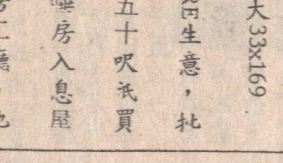 大33x169
生意，批
五十呎祇買
房入息屋